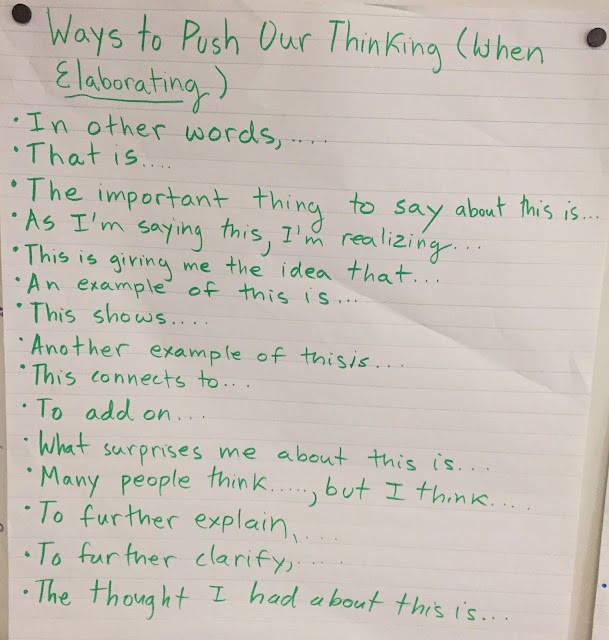 Ways to Push Our Thinking (When
Elaborating)
• In other words,....
• That is....
• The important thing to say about this is...
• As I'm saying this, I'm realizing...
• This is giving me the idea that...
• An example of this is...
• This shows....
• Another example of this is...
• This connects to...
• To add on...
• What surprises me about this is...
• Many people think....., but I think....
• To further explain,....
• To further clarify,....
• The thought I had about this is...